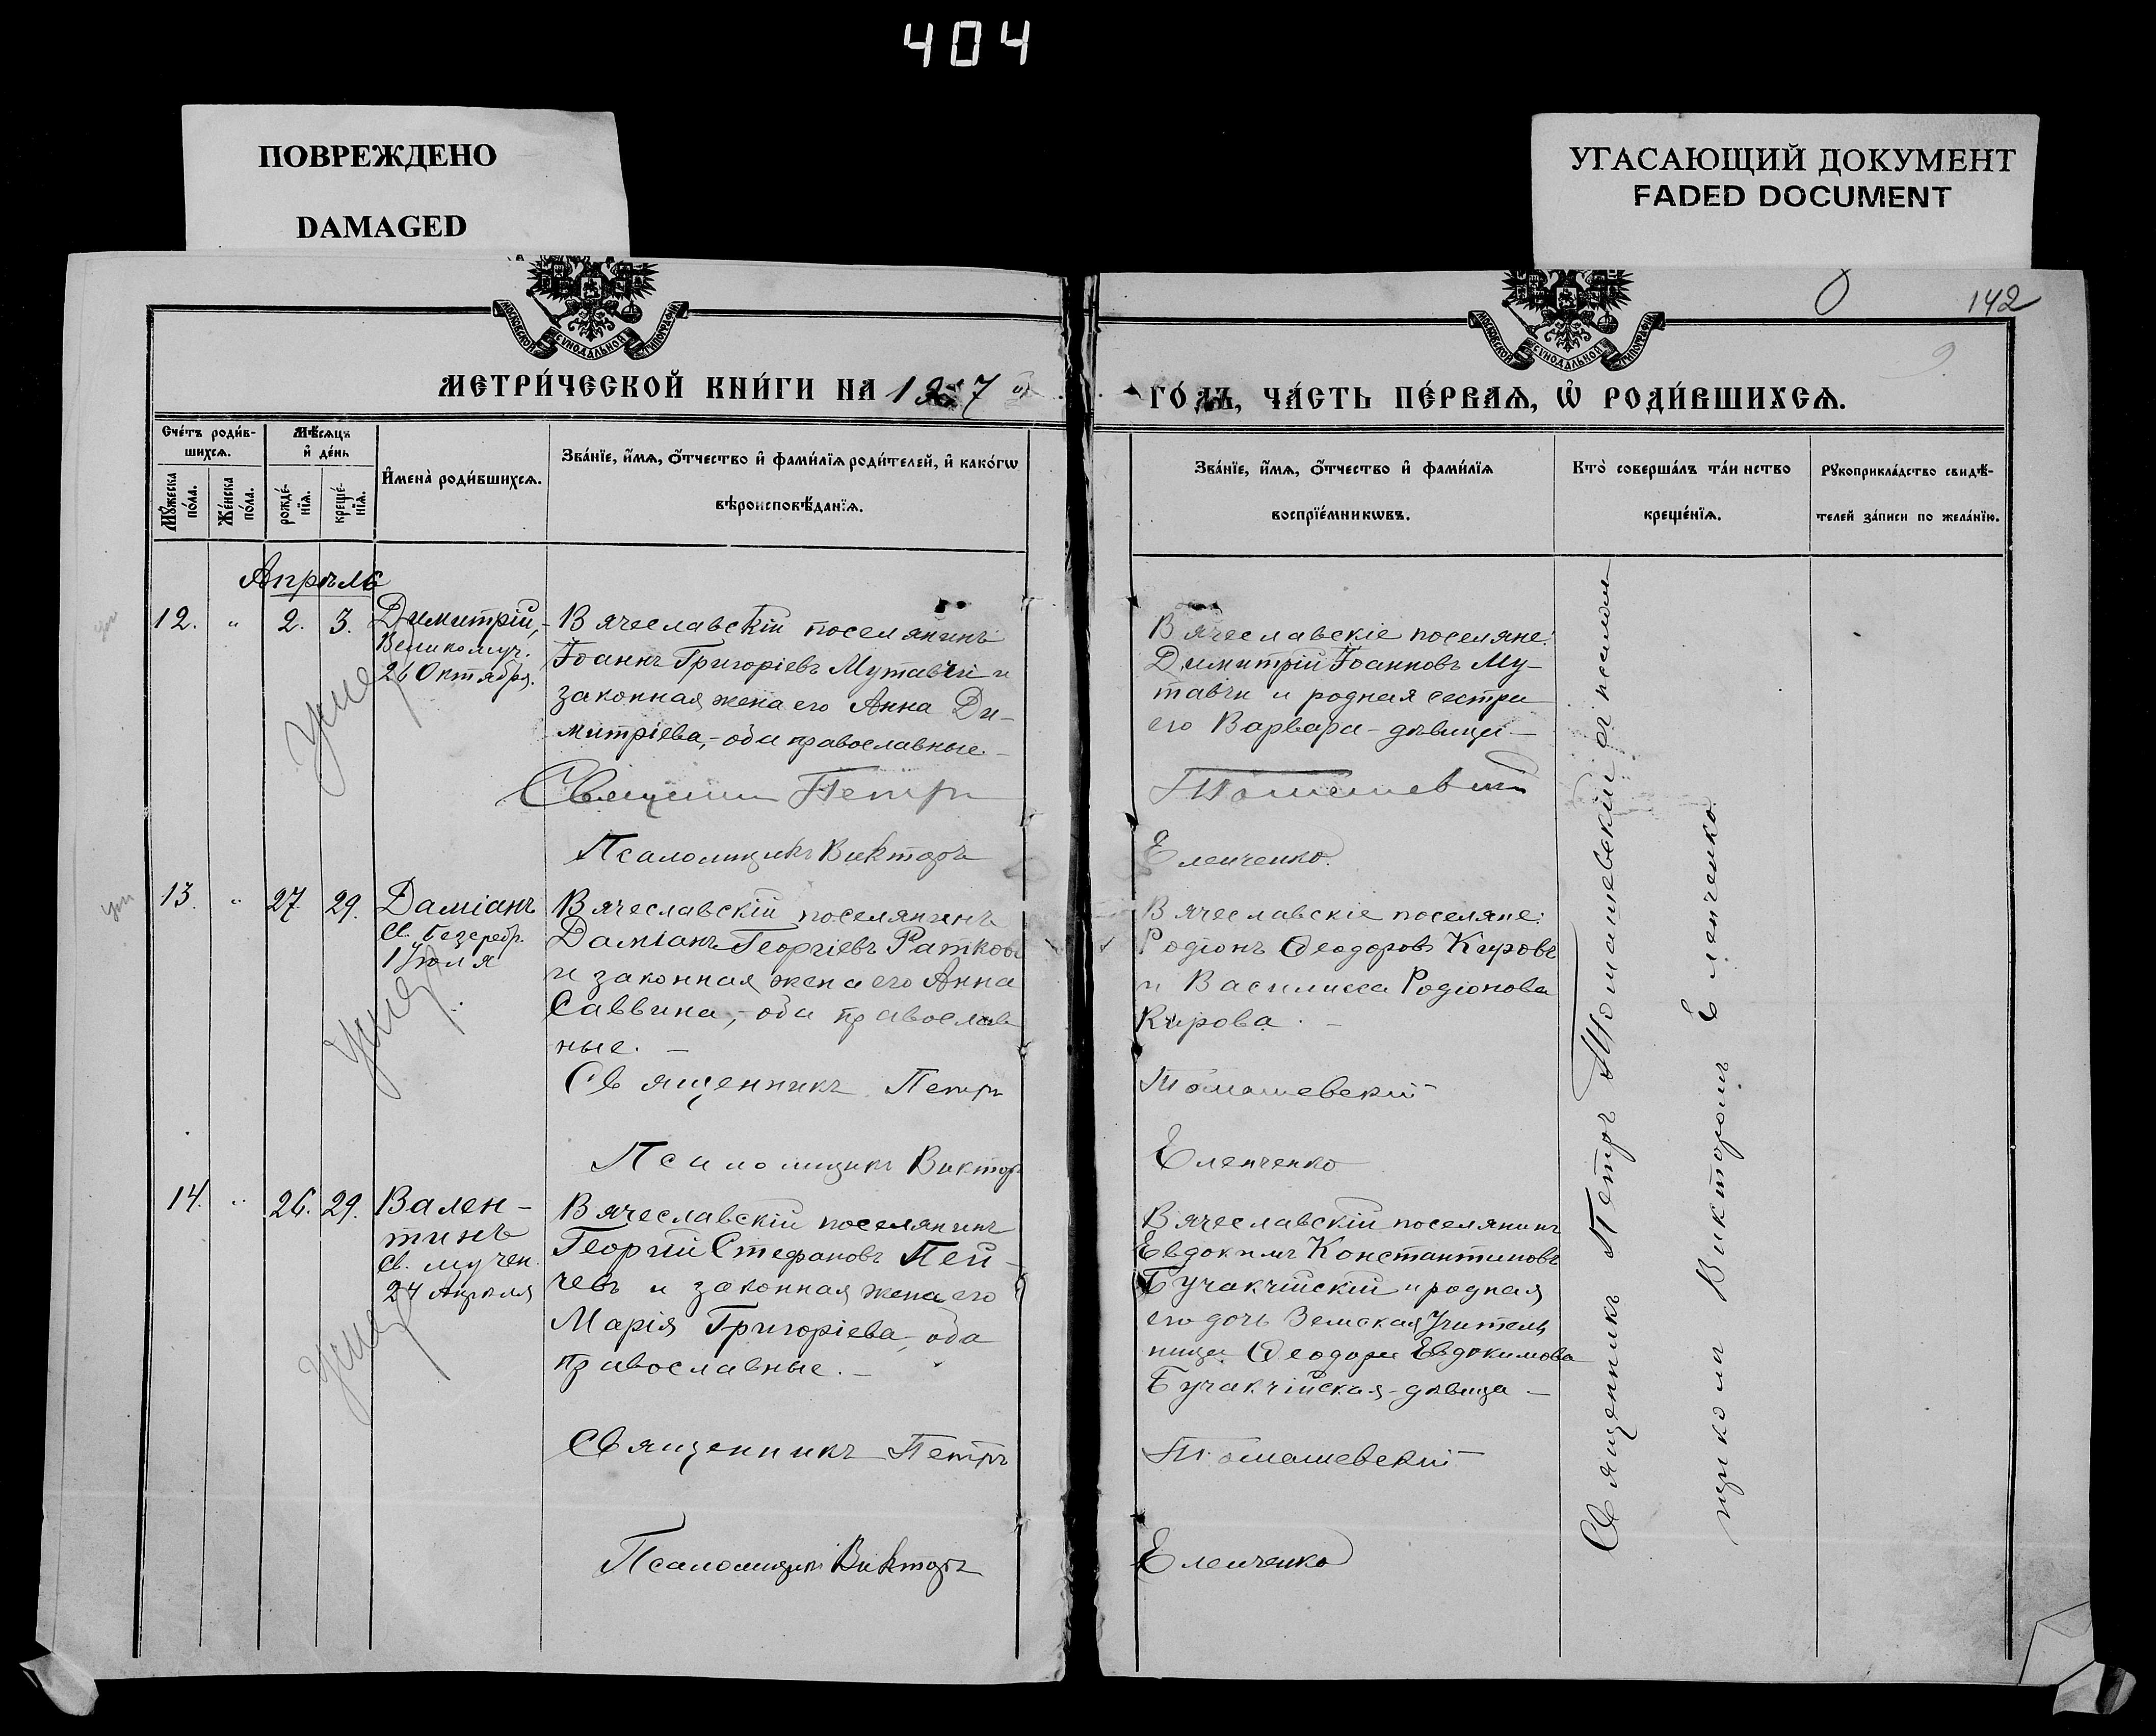 404
ПОВРЕЖДЕНО
DAMAGED
УГАСАЮЩИЙ ДОКУМЕНТ
FADED DOCUMENT
142
9
МОСКОВСКОЙ СѴНОДАЛЬНОЙ ТИПОГРАФІИ
МОСКОВСКОЙ СѴНОДАЛЬНОЙ ТИПОГРАФІИ
МЕТРИ́ЧЕСКОЙ КНИ́ГИ НА 1907
ГО́ДЪ, ЧА́СТЬ ПЕ́РВАѦ, Ѡ҆ РОДИ́ВШИХСѦ.
Сче́тъ роди́в-
шихсѧ.
Мѣ́сѧцъ
и҆ де́нь
Мꙋ́жеска по́ла.
Же́нска по́ла.
рожде́-нїѧ.
креще́-нїѧ.
И҆мена̀ роди́вшихсѧ.
Зва́нїе, и҆́мѧ, ѻ҆́тчество и҆ фами́лїѧ роди́телей, и҆ како́гѡ
вѣроисповѣ́данїѧ.
Зва́нїе, и҆́мѧ, ѻ҆́тчество и҆ фами́лїѧ
воспрїе́мникѡвъ.
Кто̀ соверша́лъ та́инство
креще́нїѧ.
Рꙋкоприкла́дство свидѣ́-
телей за́писи по жела́нїю.
Апрѣль
12. " 2. 3. Димитрій,
Великомуч.
26 Октября.
Умер
Вячеславскій поселянинъ
Іоаннъ Григоріевъ Мутавчи и
законная жена его Анна Ди-
митріева,- оба православные -
Священникъ Петръ
Псаломщикъ Викторъ
Вячеславскіе поселяне:
Димитрій Іоанновъ Му-
тавчи и родная сестра
его Варвара - дѣвица -
Томашевскій
Еленченко.
ум
13. " 27. 29. Даміанъ
Св. Безсребр.
1 Іюля
Умер
Вячеславскій поселянинъ
Даміанъ Георгіевъ Ратковъ
и законная жена его Анна
Саввина,- оба православ
ные. -
Священникъ Петръ
Псаломщикъ Викторъ
Вячеславскіе поселяне:
Родіонъ Ѳеодоровъ Кировъ
и Василиса Родіонова
Кирова. -
Томашевскій
Еленченко
14. " 26. 29. Вален-
тинъ
Св. мучен.
24 Апрѣля
Умер
Вячеславскій поселянинъ
Георгій Стефановъ Пей-
чевъ и законная жена его
Марія Григоріева,- оба
православные. -
Священникъ Петръ
Псаломщикъ Викторъ
Вячеславскій поселянинъ
Евдокимъ Константиновъ
Бучакчійскій и родная
его дочь Земская Учитель
ница Ѳеодора Евдокимова
Бучакчійская - дѣвица -
Томашевскій
Еленченко
Священникъ Петръ Томашевскій съ псалом-
щикомъ Викторомъ Еленченко.